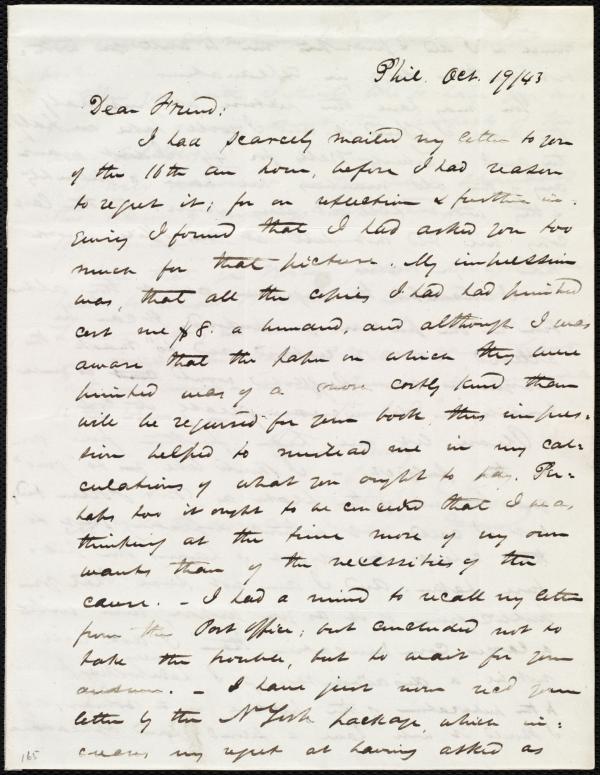 Phil. Oct. 19/43
Dear Friend:
I had scarcely mailed my letter to you
of the 16th an hour, before I had reason
to regret it; for on reflection & further in-
quiry I found that I had asked you too
much for that picture. My impression
was, that all the copies I had had printed
cost me $8. a hundred, and although I was
aware that the paper on which they were
printed was of a more costly kind than
will be required for your book this impres-
sion helped to mislead me in my cal-
culations of what you ought to pay. Per-
haps too it ought to be conceded that I was
thinking at the time more of my own
wants than of the necessities of the
cause. – I had a mind to recall my letter
from the Post Office; but concluded not to
take the trouble, but to wait for your
answer. – I have just now rec'd your
letter by the N York package, which in-
creases my regret at having asked as
165